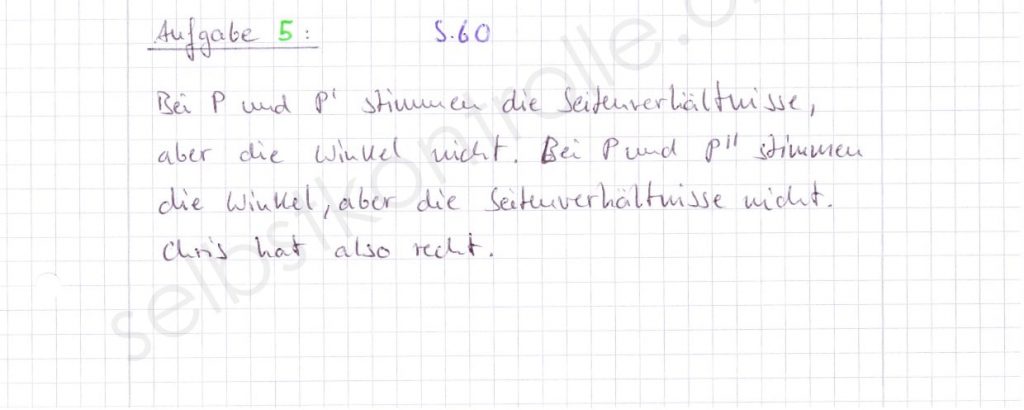 Aufgabe 5: S.60
Bei P und P' stimmen die Seitenverhältnisse,
aber die Winkel nicht. Bei P und P'' stimmen
die Winkel, aber die Seitenverhältnisse nicht.
Chris hat also recht.
selbstkontrolle.